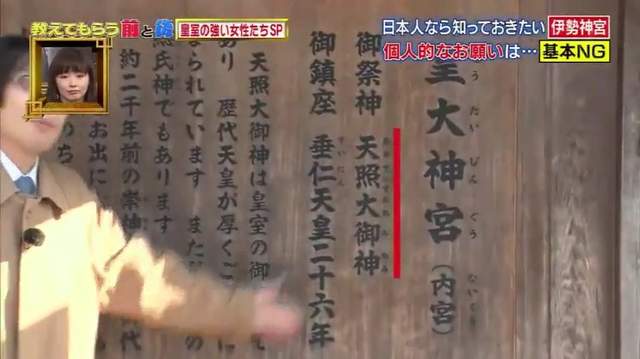 教えてもらう前と後
皇室の強い女性たちSP
日本人なら知っておきたい 伊勢神宮
個人的なお願いは… 基本NG
大神宮(内宮)
御祭神 天照大御神
御鎮座 垂仁天皇二十六年
天照大御神は皇室の御
あり 歴代天皇が厚くご
られています また
氏神でもあります
約二千年前の崇神
お出に
のち